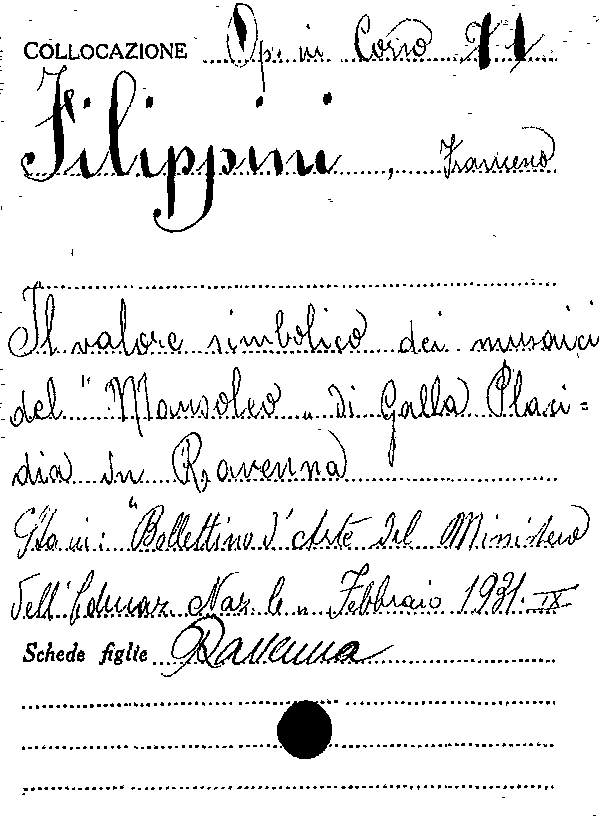 COLLOCAZIONE Op. in Corso 71
Filippini, Francesco
Il valore simbolico dei musaici
del "Mausoleo" di Galla Placi=
dia in Ravenna
Sta in: "Bollettino d'Arte del Ministero
dell'Educaz. Naz.le" Febbraio 1931. IX
Schede figlie Ravenna